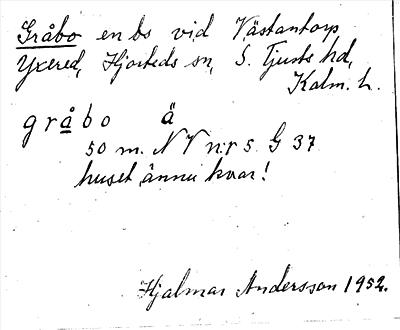 Gråbo en bs vid Västantorp
Yxered, Hjorteds sn, S. Tjusts hd,
Kalm. l.
gråbo ä
50 m. NV nr 5 G 37
huset ännu kvar!
Hjalmar Andersson 1952.